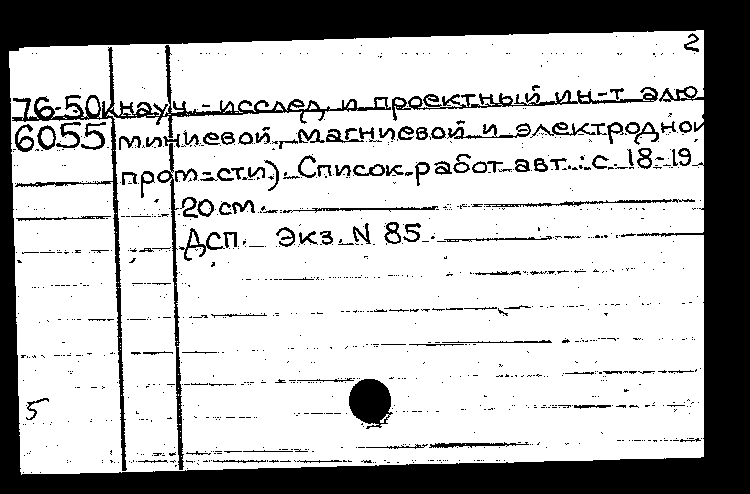 2
76-50к науч.-исслед. и проектный ин-т алю-
6055 миниевой, магниевой и электродной
пром-сти). Список работ авт.: с. 18-19.
20 см.
ДСП. Экз. N 85.
5